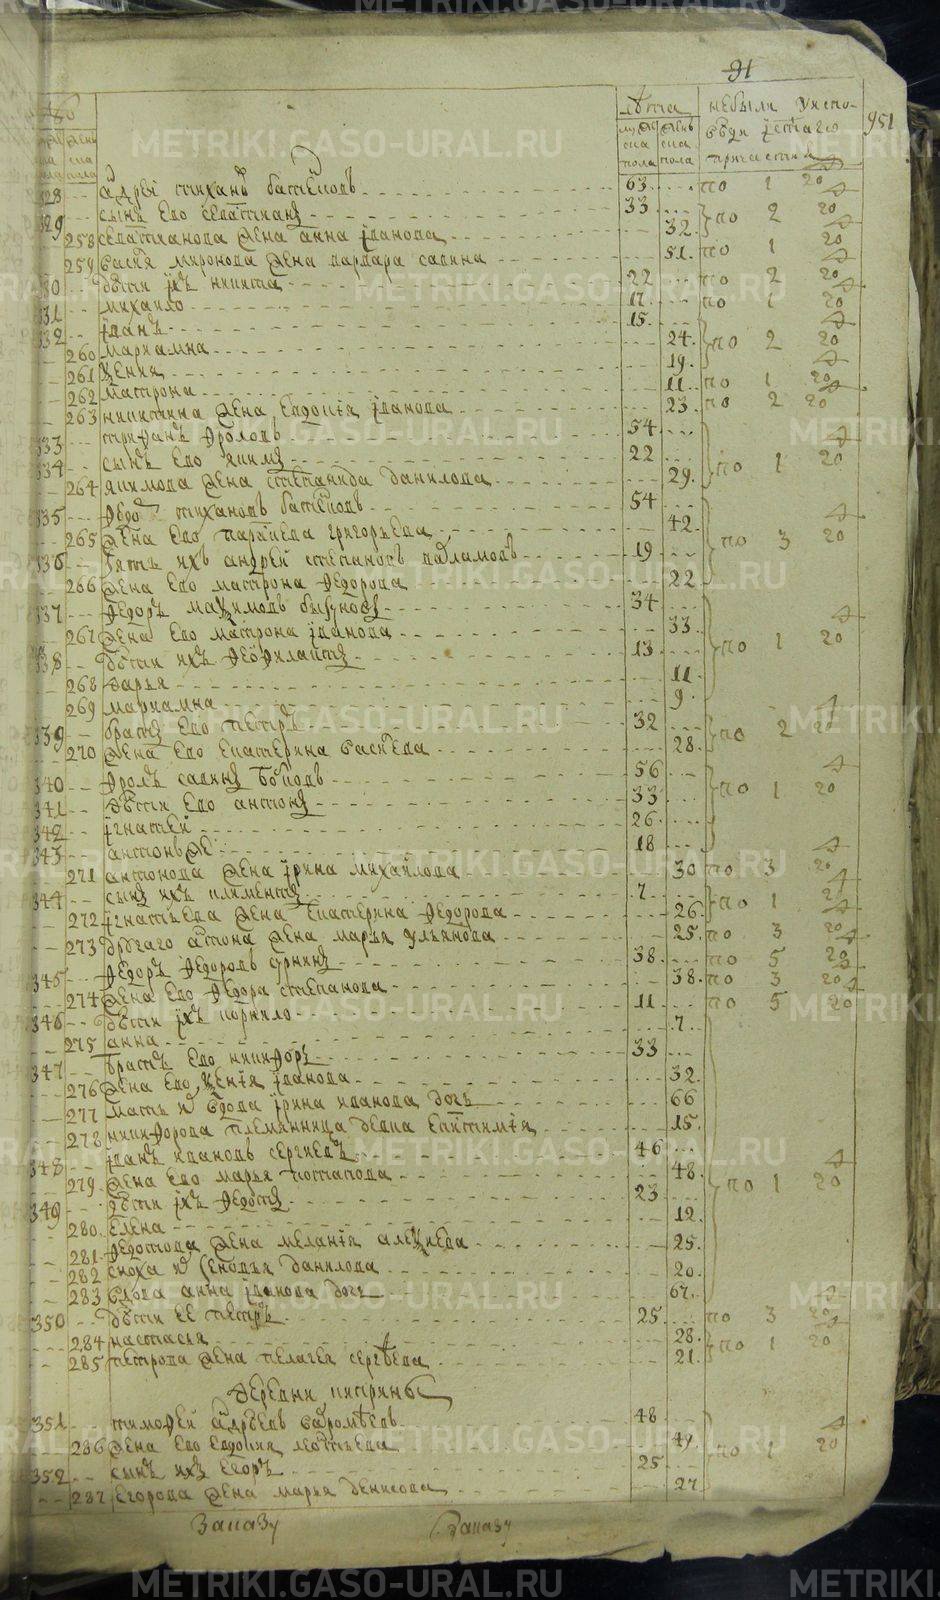 METRIKI.GASO-URAL.RU
91
951
лѣта небыли Уиспо-
вѣди істаго
причастия
мужеска пола женьска пола
328 андреи тихановъ 63 по 1 20
329 сынъ его севастиан 33 по 2 20
258 севастианова жена анна іванова 32
259 васил миронова жена варвара савина 51 по 1 20
330 дѣти іхъ никита 22 по 2 20
331 михаило 17 по 1 20
332 іванъ 15 по 2 20
260 мариамна 24
261 ксения 19
262 матрона 11 по 1 20
263 никитина жена евдокия іванова 23 по 2 20
333 трифанъ фроловъ 54 по 1 20
334 сынъ его яким 22
264 якимова жена степанида данилова 29
335 федор тихановъ 54 по 3 20
265 жена его параскева григорьева 42
336 зять ихъ андреи степановъ 19
266 жена его матрона федорова 22
337 федоръ максимовъ 34 по 1 20
267 жена его матрона іванова 33
338 дѣти ихъ феофилактъ 13
268 дарья 11
269 мариамна 9
339 братъ его петръ 32 по 2 20
270 жена его екатерина василева 28
340 фролъ савинъ 56 по 1 20
341 дѣти его антонъ 33
342 ігнатеи 26
343 антонъ же 18
271 антонова жена ірина михаилова 30 по 3 20
344 сынъ ихъ климентъ 7 по 1 20
272 ігнатьева жена екатерина федорова 26
273 другаго антона жена марья ульянова 25 по 3 20
345 федоръ федоровъ 38 по 5 20
274 жена его федора степанова 38 по 3 20
346 дѣти іхъ корнило 11 по 5 20
275 анна 7
347 братъ его никифоръ 33
276 жена его ксения іванова 32
277 мать и вдова ірина иванова дочь 66
278 никифорова племянница девка епистимия 15
348 іванъ ивановъ сергиевъ 46 по 1 20
279 жена его марья потапова 48
349 дѣти іхъ федотъ 23
280 елена 12
281 федотова жена мелания алексиева 25
282 сноха и данилова 20
283 вдова анна іванова дочь 67
350 дѣти ее петръ 25 по 3 20
284 настасья 28 по 1 20
285 петрова жена пелагея сергѣева 21
деревни
351 тимофеи андреевъ варламѣевъ 48 по 1 20
286 жена его евдокия 49
352 сынъ ихъ егоръ 25
287 егорова жена марья денисова 27